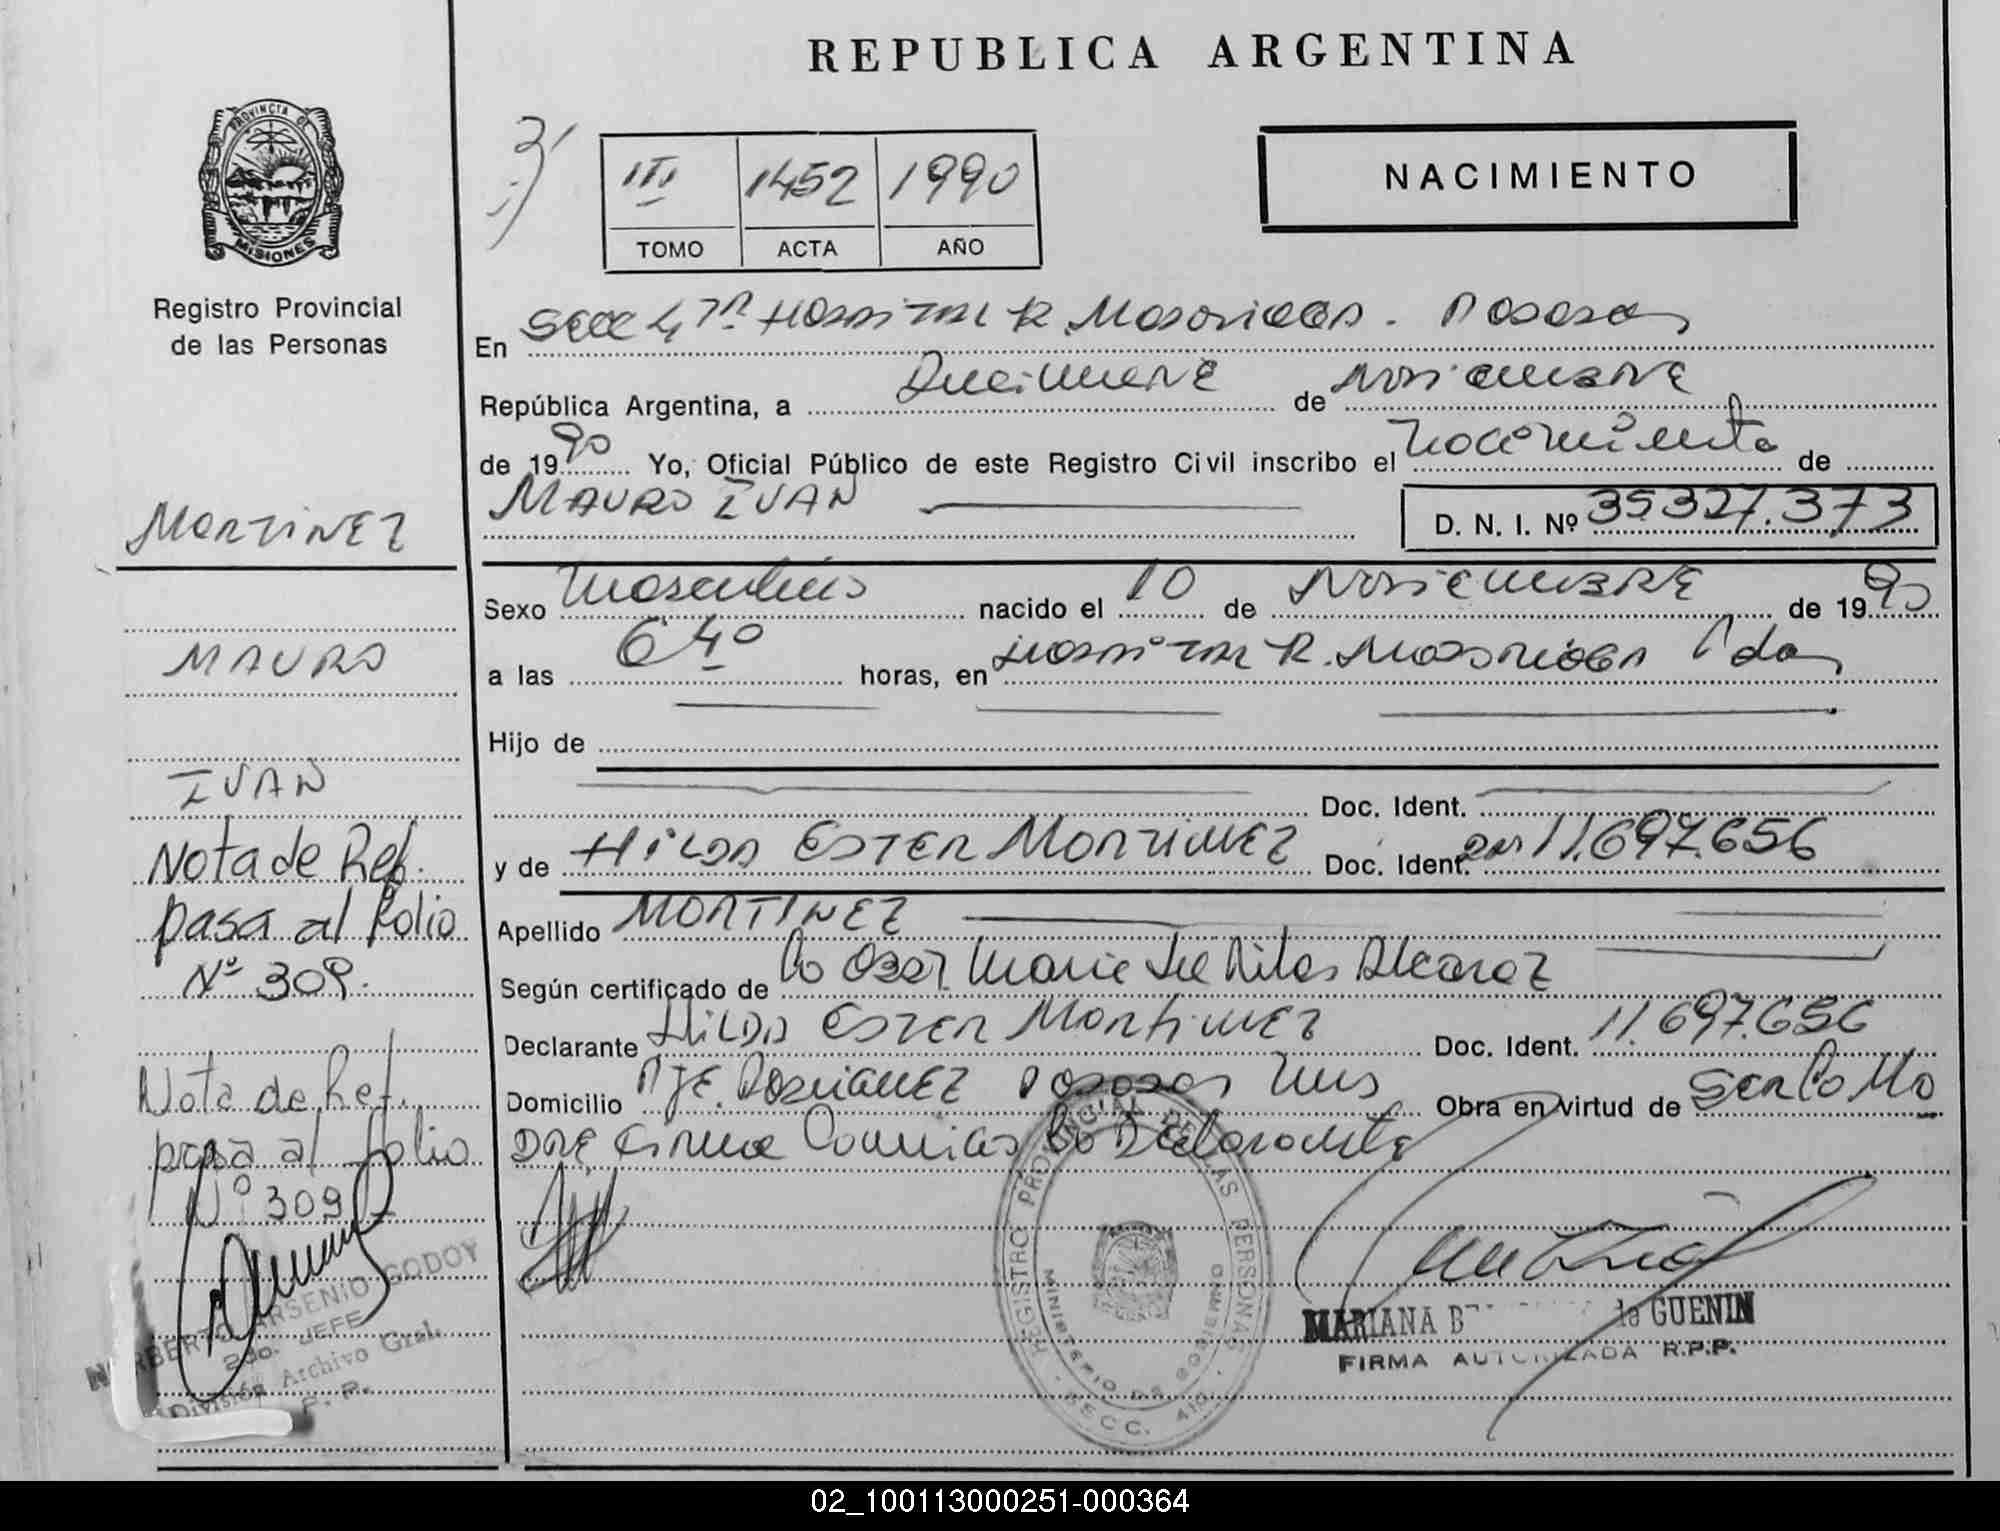 REPUBLICA ARGENTINA
PROVINCIA DE
MISIONES
Registro Provincial
de las Personas
III 1452 1990
TOMO ACTA AÑO
NACIMIENTO
En Secc 4ta Hospital R. Madariaga. Posadas
República Argentina, a Diecinueve de Noviembre
de 1990 Yo, Oficial Público de este Registro Civil inscribo el nacimiento de
MAURO IVAN
D. N. I. Nº 35327.373
MARTINEZ
MAURO
IVAN
Nota de Ref.
pasa al folio
Nº 309.
Nota de Ref.
pasa al folio
Nº 309
NORBERTO ARSENIO GODOY
2do. JEFE
División Archivo Gral.
R. P.
Sexo Masculino nacido el 10 de Noviembre de 1990
a las 6 40 horas, en Hospital R. Madariaga Pdas
Hijo de
Doc. Ident.
y de HILDA ESTER MARTINEZ Doc. Ident. 11.697.656
Apellido MARTINEZ
Según certificado de la Obst. Maria de Alcaraz
Declarante HILDA ESTER MARTINEZ Doc. Ident. 11.697.656
Domicilio Pje. Posadas Mns Obra en virtud de Ser la Ma
dre, firma Conmigo la Declarante
REGISTRO PROVINCIAL DE LAS PERSONAS
MINISTERIO DE GOBIERNO
SECC. 4ta.
MARIANA de GUENIN
FIRMA AUTORIZADA R.P.P.
02_100113000251-000364